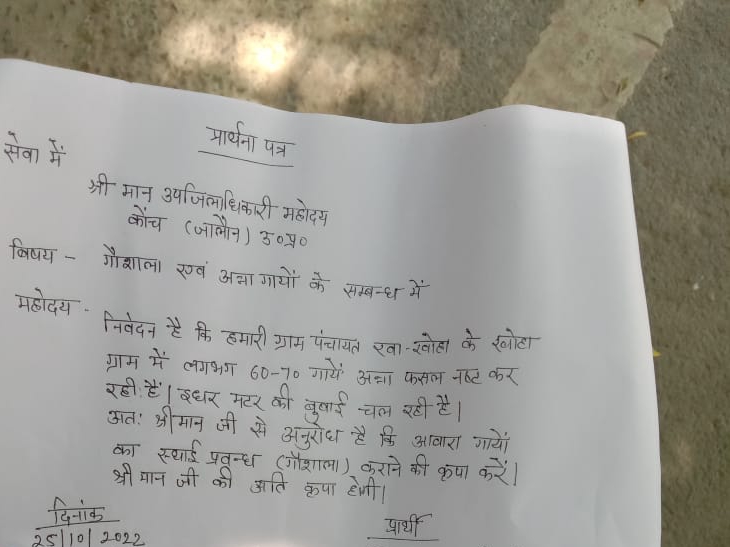 प्रार्थना पत्र
सेवा में
श्री मान उपजिलाधिकारी महोदय
कोंच (जालौन) उ०प्र०
विषय - गौशाला एवं अन्ना गायों के सम्बन्ध में
महोदय -
निवेदन है कि हमारी ग्राम पंचायत रवा-खोहा के खोहा
ग्राम में लगभग 60-70 गायें अन्ना फसल नष्ट कर
रही हैं। इधर मटर की बुबाई चल रही है।
अतः श्रीमान जी से अनुरोध है कि आवारा गायों
का स्थाई प्रवन्ध (गौशाला) कराने की कृपा करें।
श्री मान जी की अति कृपा होगी।
दिनांक
25/10/2022
प्रार्थी